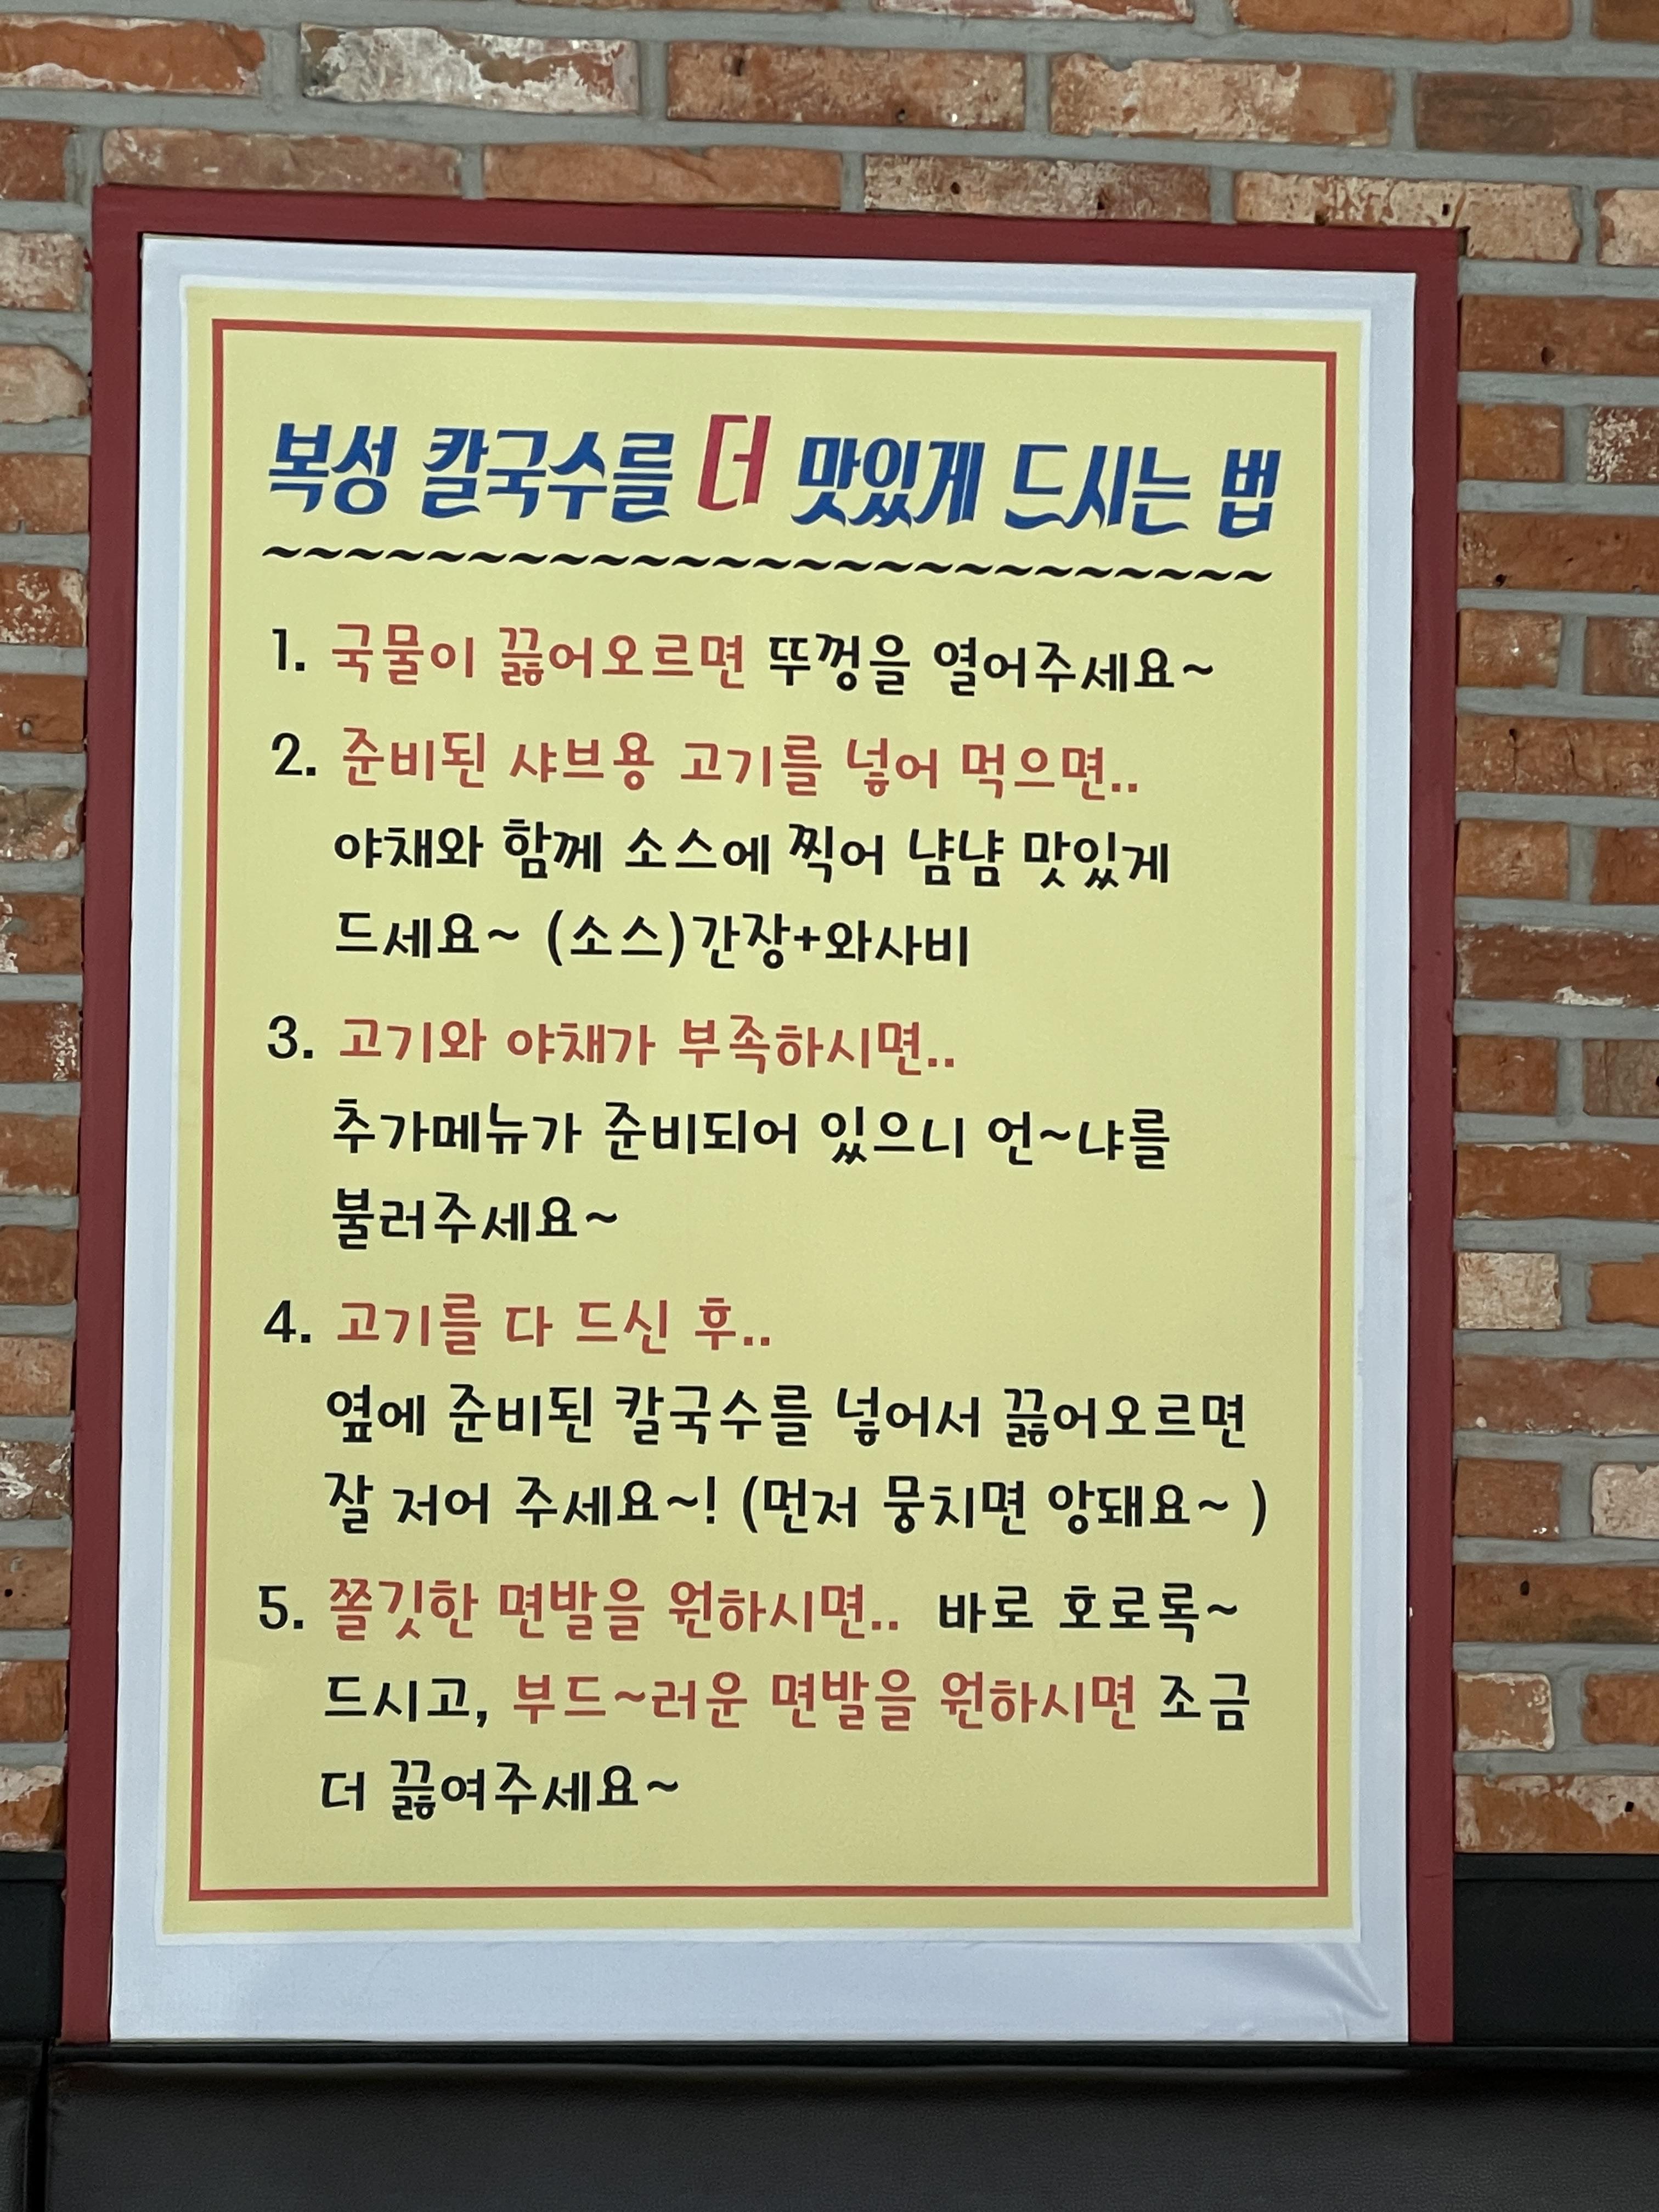 복성 칼국수를 더 맛있게 드시는 법
~~~~~~~~~~~~~~~~~~~~~~~~~
1. 국물이 끓어오르면 뚜껑을 열어주세요~
2. 준비된 샤브용 고기를 넣어 먹으면..
야채와 함께 소스에 찍어 냠냠 맛있게
드세요~ (소스)간장+와사비
3. 고기와 야채가 부족하시면..
추가메뉴가 준비되어 있으니 언~냐를
불러주세요~
4. 고기를 다 드신 후..
옆에 준비된 칼국수를 넣어서 끓어오르면
잘 저어 주세요~! (먼저 뭉치면 앙돼요~ )
5. 쫄깃한 면발을 원하시면.. 바로 호로록~
드시고, 부드~러운 면발을 원하시면 조금
더 끓여주세요~